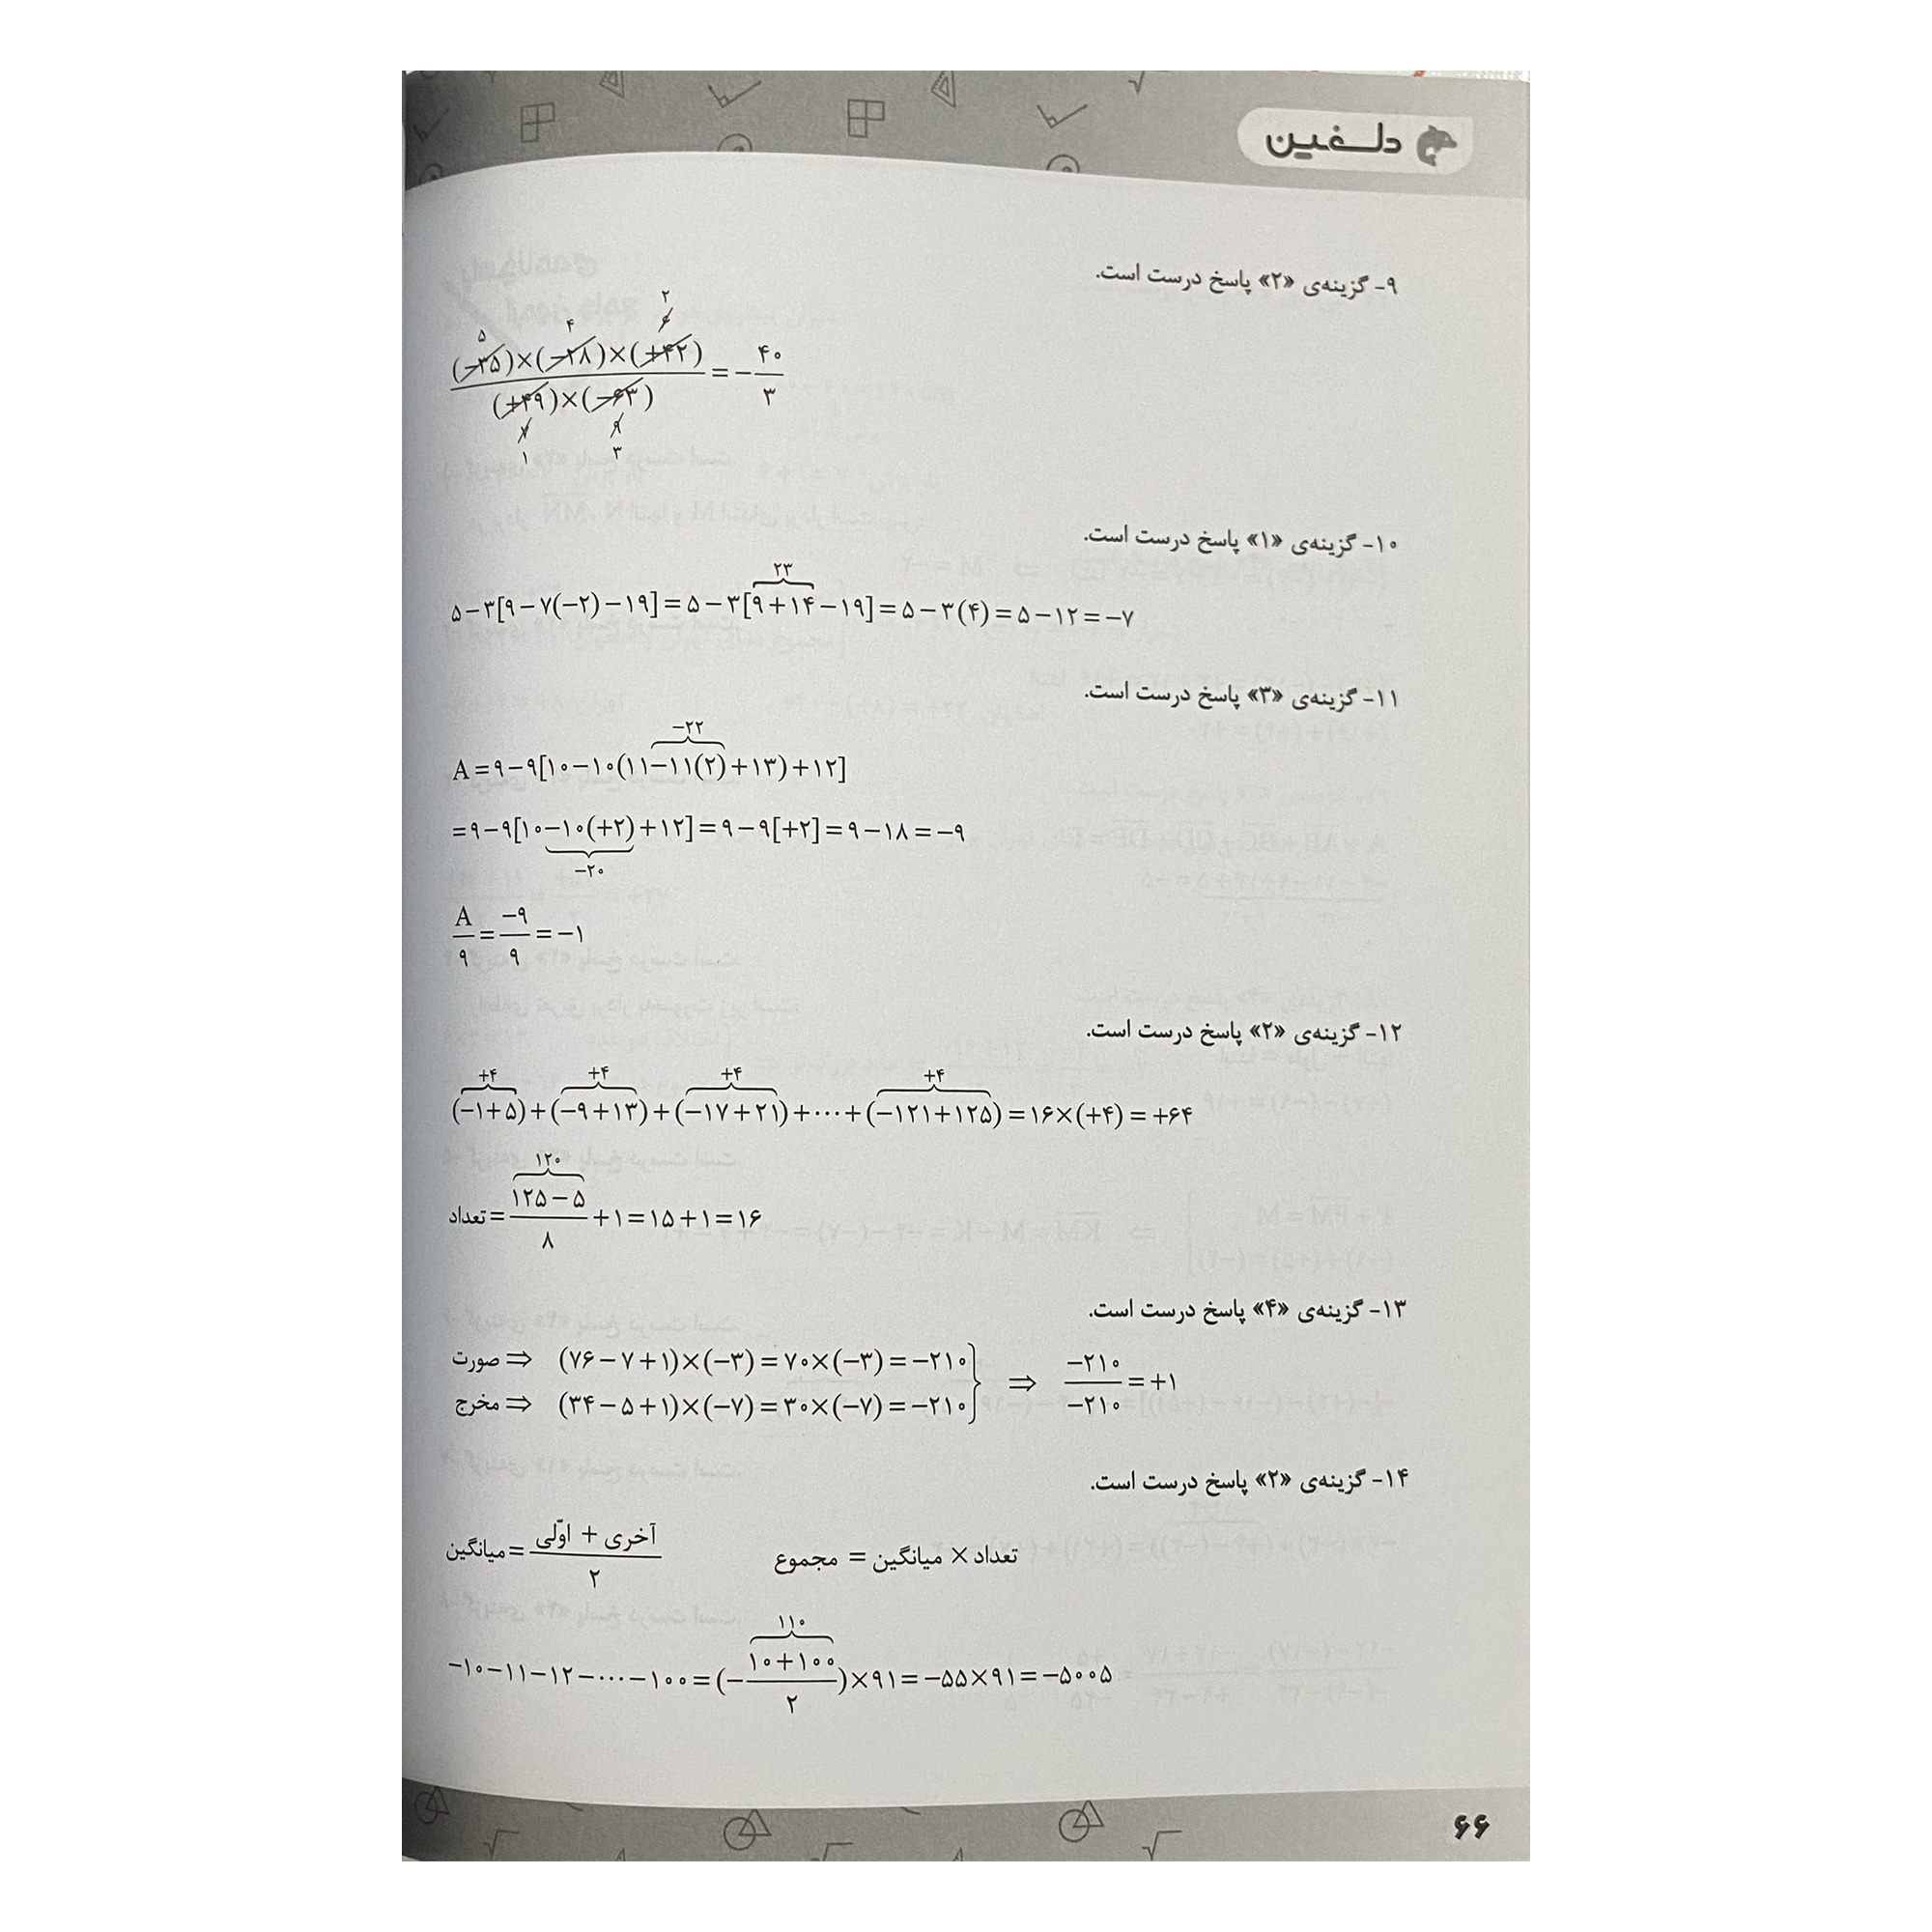 دلفین
۹- گزینه‌ی «۲» پاسخ درست است.
۲
۵ ۴ ۶
(−۳۵)×(−۲۸)×(+۴۲) / (+۴۹)×(−۶۳) = −۴۰/۳
۷ ۹
۱ ۳
۱۰- گزینه‌ی «۱» پاسخ درست است.
۲۳
۵−۳[۹−۷(−۲)−۱۹]=۵−۳[۹+۱۴−۱۹]=۵−۳(۴)=۵−۱۲=−۷
۱۱- گزینه‌ی «۳» پاسخ درست است.
−۲۲
A=۹−۹[۱۰−۱۰(۱۱−۱۱(۲)+۱۳)+۱۲]
=۹−۹[۱۰−۱۰(+۲)+۱۲]=۹−۹[+۲]=۹−۱۸=−۹
−۲۰
A/۹=−۹/۹=−۱
۱۲- گزینه‌ی «۲» پاسخ درست است.
+۴ +۴ +۴ +۴
(−۱+۵)+(−۹+۱۳)+(−۱۷+۲۱)+⋯+(−۱۲۱+۱۲۵)=۱۶×(+۴)=+۶۴
۱۲۰
تعداد = (۱۲۵−۵)/۸ +۱=۱۵+۱=۱۶
۱۳- گزینه‌ی «۴» پاسخ درست است.
صورت ⇒ (۷۶−۷+۱)×(−۳)=۷۰×(−۳)=−۲۱۰
مخرج ⇒ (۳۴−۵+۱)×(−۷)=۳۰×(−۷)=−۲۱۰} ⇒ −۲۱۰/−۲۱۰=+۱
۱۴- گزینه‌ی «۲» پاسخ درست است.
میانگین = (آخری + اوّلی)/۲ تعداد × میانگین = مجموع
۱۱۰
−۱۰−۱۱−۱۲−⋯−۱۰۰=(−(۱۰+۱۰۰)/۲)×۹۱=−۵۵×۹۱=−۵۰۰۵
۶۶